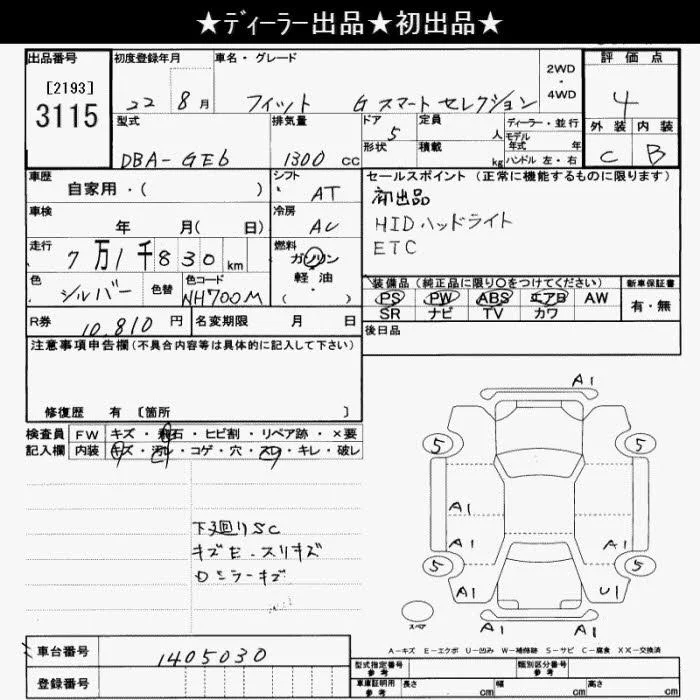 ★ディーラー出品★初出品★
出品番号
[2193]
3115
初度登録年月
22 8月
車名・グレード
フィット G スマートセレクション
2WD
・
4WD
評価点
4
外装 内装
C B
型式
DBA-GE6
排気量
1300 cc
ドア
5
形状
定員
人
積載
kg
ディーラー・並行
モデル
年式 年
ハンドル 左・右
車歴
自家用・( )
シフト
AT
車検
年 月( 日)
冷房
AC
走行
7万1千830km
燃料
ガソリン
軽・油
・( )
色
シルバー
色替
色コード
NH700M
R券
10,810円
名変期限 月 日
セールスポイント (正常に機能するものに限ります)
初出品
HIDハッドライト
ETC
装備品(純正品に限り○をつけてください)
新車保証書
PS PW ABS エアB AW
SR ナビ TV カワ
有・無
後日品
注意事項申告欄(不具合内容等は具体的に記入して下さい)
修復歴 有 〔箇所 〕
検査員
記入欄
FW キズ・飛石・ヒビ割・リペア跡・×要
内装 キズ・汚レ・コゲ・穴・スレ・キレ・破レ
下廻りSC
キズE・スリキズ
ロミラーキズ
A1
5 5
A1
A1 A1
5 5
A1 U1
A1 A1
スペア
A-キズ E-エクボ U-凹み W-補修跡 S-サビ C-腐食 XX-交換済
車台番号
1405030
登録番号
型式指定番号
参考
類別区分番号
参考
車庫証明用
参考
長さ cm 幅 cm 高さ cm